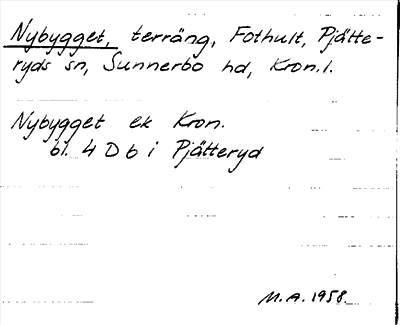 Nybygget, terräng, Fothult, Pjätte-
ryds sn, Sunnerbo hd, Kron.l.
Nybygget ek Kron.
bl. 4 D b i Pjätteryd
M.A. 1958